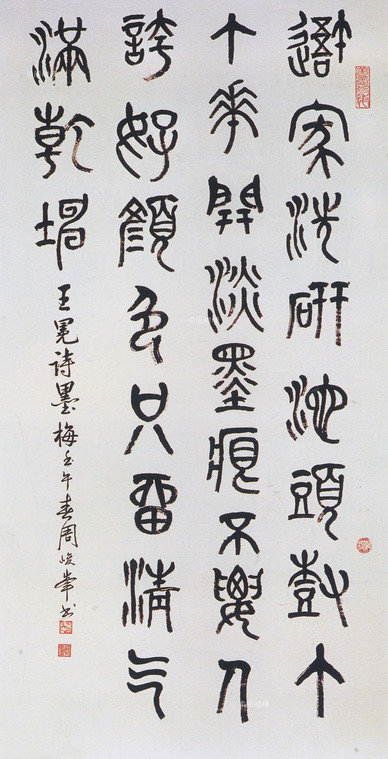 吾家洗研池頭樹个
个花開淡墨痕不要人
誇好顏色只留清气
滿乾坤
王冕詩墨梅壬午春周峻峯书